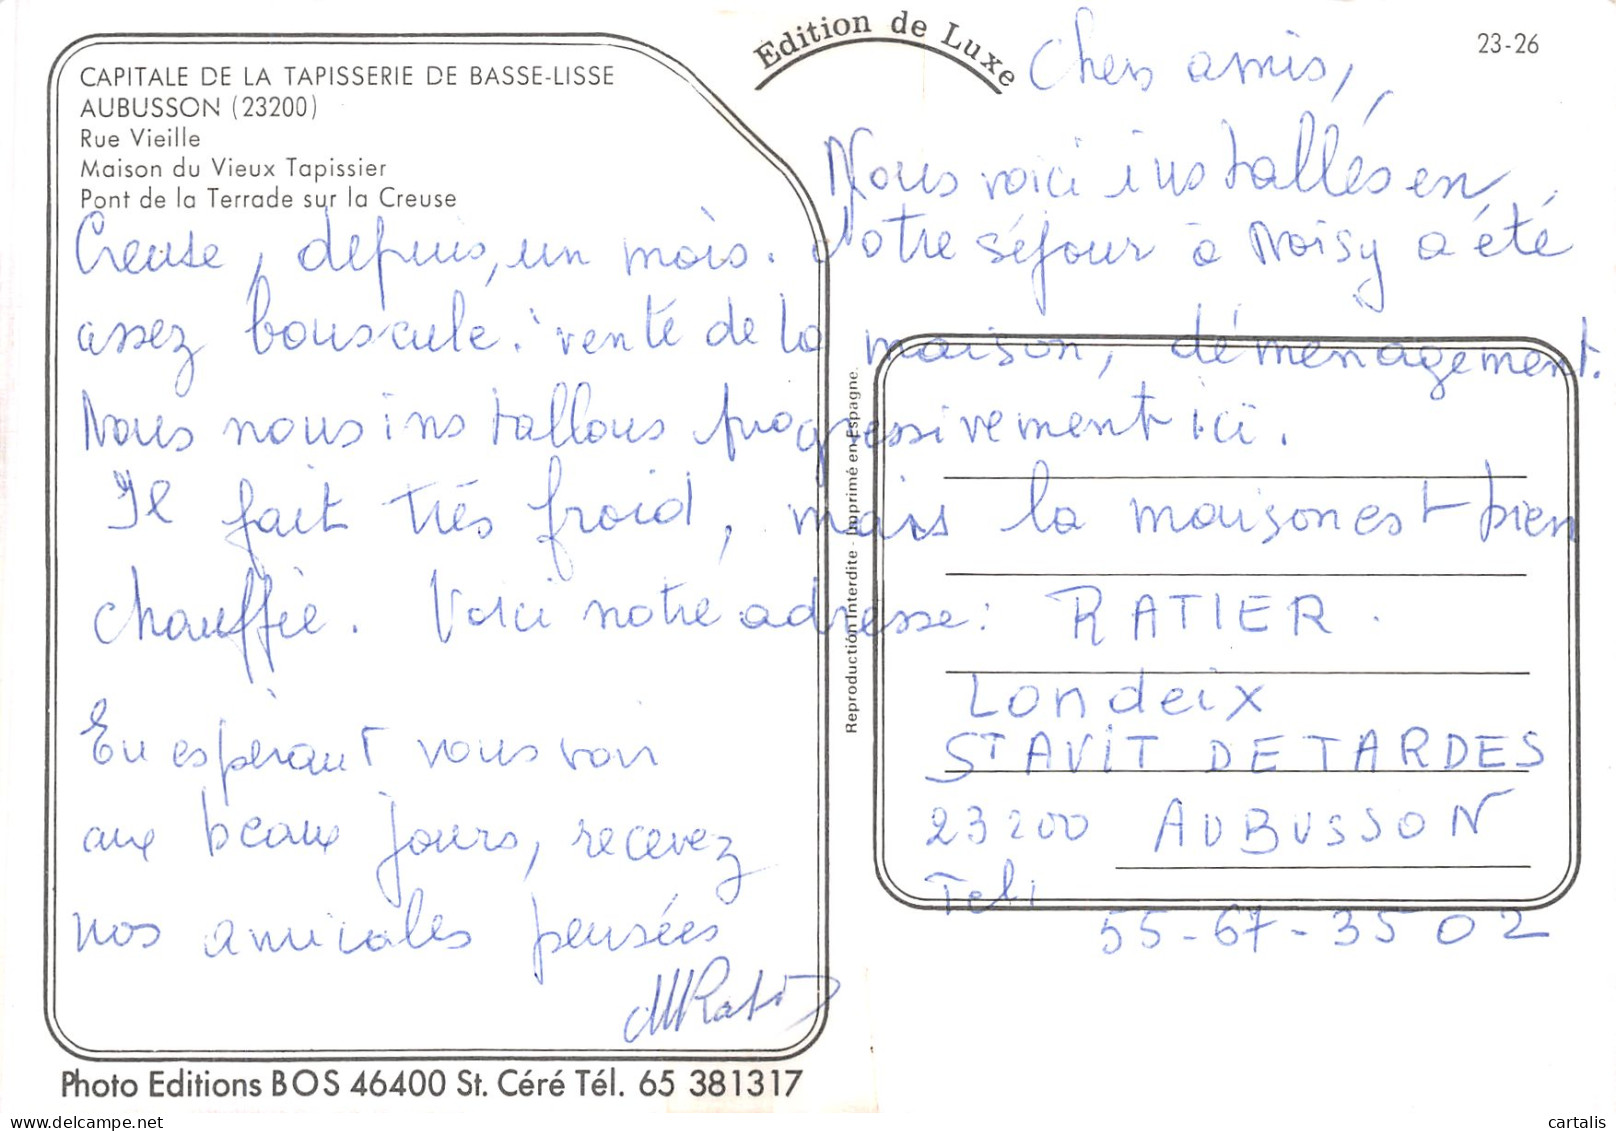 Edition de Luxe
23-26
CAPITALE DE LA TAPISSERIE DE BASSE-LISSE
AUBUSSON (23200)
Rue Vieille
Maison du Vieux Tapissier
Pont de la Terrade sur la Creuse
Chers amis,
Nous voici installés en
Creuse, depuis, un mois. Notre séjour à Noisy a été
assez bousculé : vente de la maison, déménagement.
Nous nous installons progressivement ici.
Il fait très froid, mais la maison est bien
chauffée. Voici notre adresse : RATIER.
Londeix
ST AVIT DE TARDES
23200 AUBUSSON
Tel :
55-67-35 02
En espérant vous voir
aux beaux jours, recevez
nos amicales pensées
MRatier
Reproduction Interdite - Imprimé en Espagne
Photo Editions BOS 46400 St. Céré Tél. 65 381317
cartalis